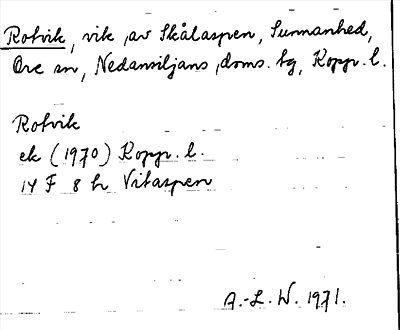 Rotvik, vik, av Skålaspen, Sunnanhed,
Ore sn, Nedansiljans doms. tg, Kopp. l.
Rotvik
ek (1970) Kopp. l.
14 F 8 h Vitaspen
A.-L. W. 1971.